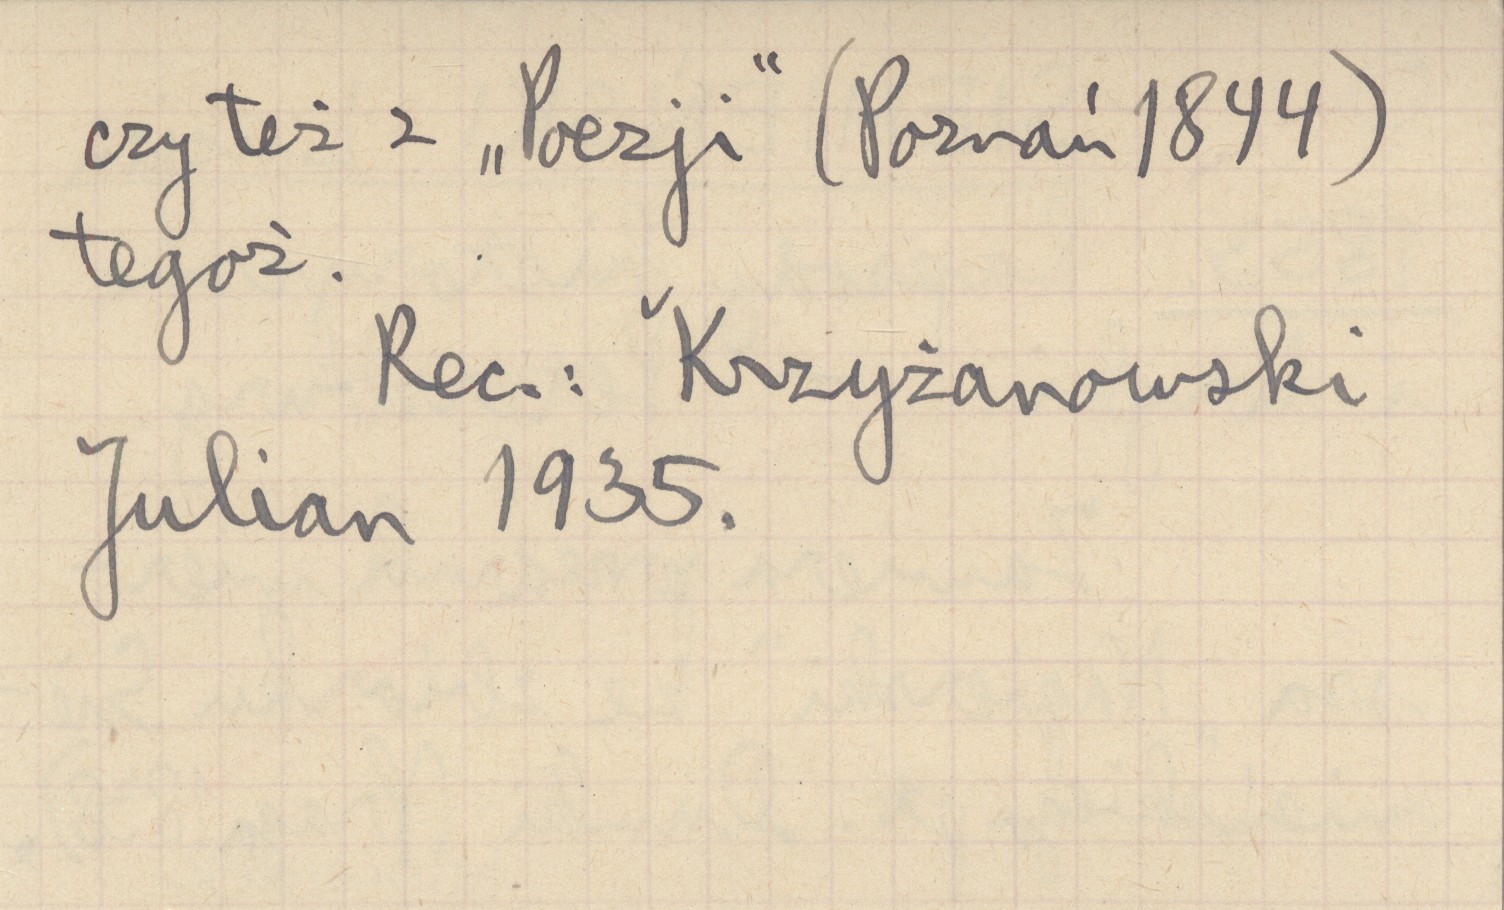 czy też z „Poezji“ (Poznań 1844)
tegoż.
Rec.: ˇKrzyżanowski
Julian 1935.